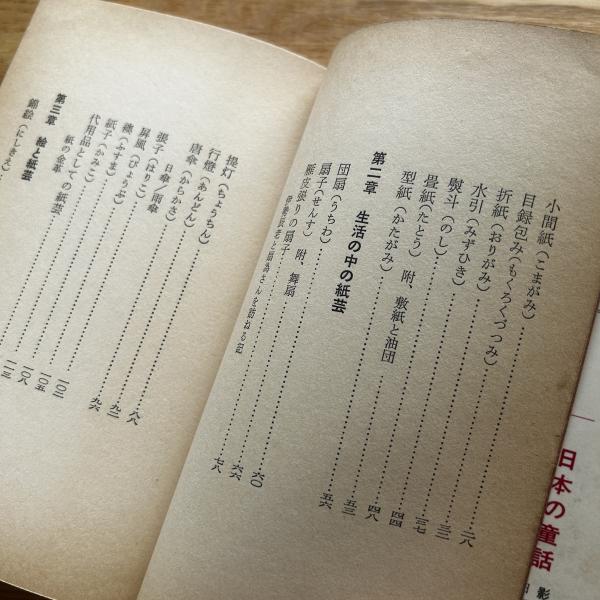 小間紙(こまがみ)……二八
目録包み(もくろくづつみ)……三二
折紙(おりがみ)……三七
水引(みずひき)……四四
熨斗(のし)……四八
畳紙(たとう) 附、敷紙と油団……五三
型紙(かたがみ)……五六
第二章 生活の中の紙芸
団扇(うちわ)……六〇
扇子(せんす)……六六
皮張りの扇子 附、舞扇……七八
伊勢辰老と扇為さんを訪ねる記
提灯(ちょうちん)……八八
行燈(あんどん)……九二
唐傘(からかさ)……九六
日傘/雨傘
張子(はりこ)……一〇二
屏風(びょうぶ)……一〇五
襖(ふすま)……一〇八
紙子(かみこ)……一一三
代用品としての紙芸
紙の金革
第三章 絵と紙芸
錦絵(にしきえ)
日本の童話
影